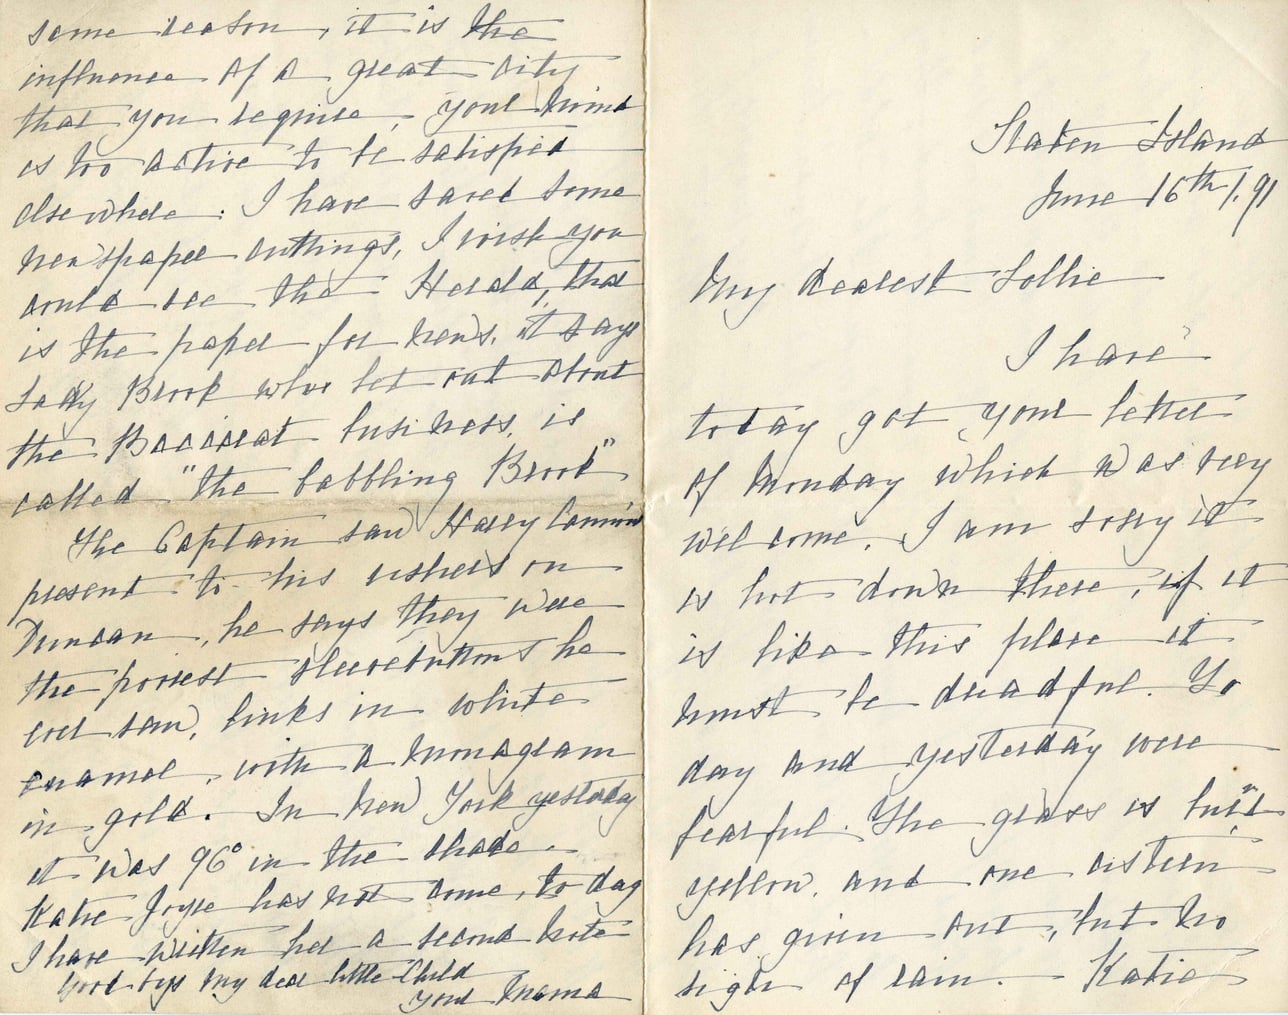 Staten Island
June 16th/.91
My dearest Lollie
I have
today got your letter
of Monday which was very
welcome. I am sorry it
is hot down there, if it
is like this place it
must be dreadful. To
day and yesterday were
fearful. The grass is
yellow. and one cistern
has given out, but no
sign of rain. - Katie
some reason, it is the
influence of a great city
that you require, your mind
is too active to be satisfied
elsewhere. I have saved some
newspaper cuttings, I wish you
could see the Herald, that
is the paper for news, it says
Lady Brook who let out about
the Baccarat business, is
called "the babbling Brook"
The Captain saw Harry
present to his ushers on
Duncan, he says they were
the poorest sleevebuttons he
ever saw, links in white
enamel, with a monogram
in gold. In New York yesterday
it was 96° in the shade.
Katie Joyce has not come, to day
I have written her a second note
Good bye my dear little Child
your Mama